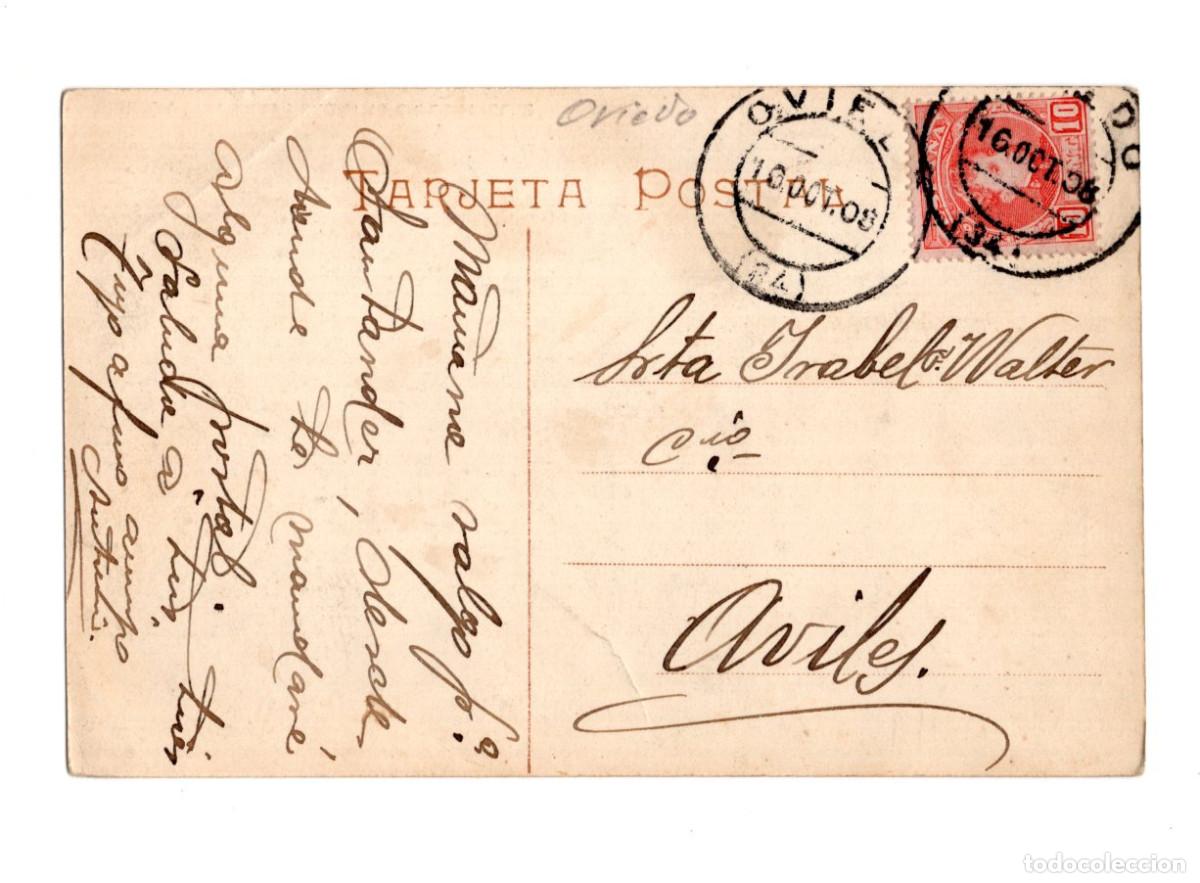 Oviedo
TARJETA POSTAL
OVIEDO
16.OCT.08
(34)
10
10
16.OCT.08
Mañana salgo pª
Santander, desde
donde te mandaré
alguna postal.
Saluda á tus
tuyo afmo amigo
Srta Isabel F. Walter
Cio
Aviles.
todocoleccion